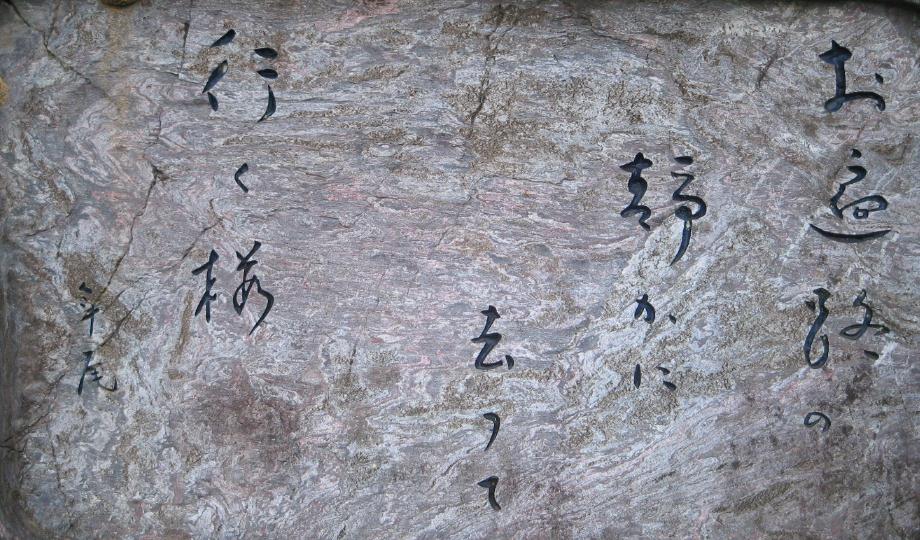 お遍路の
静かに
去つて
行く桜
年尾